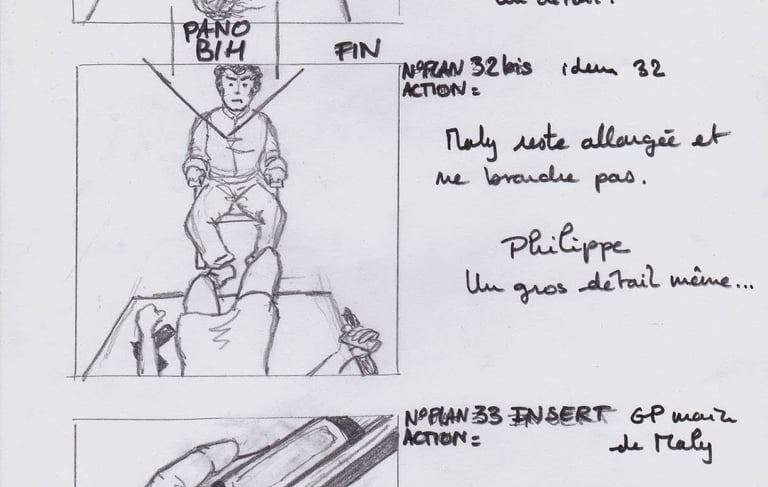 un détail.
PANO
BIH
FIN
N°PLAN 32 bis idem 32
ACTION=
Maly reste allongée et
ne branche pas.
Philippe
Un gros détail même...
N°PLAN 33 INSERT GP main
ACTION= de Maly